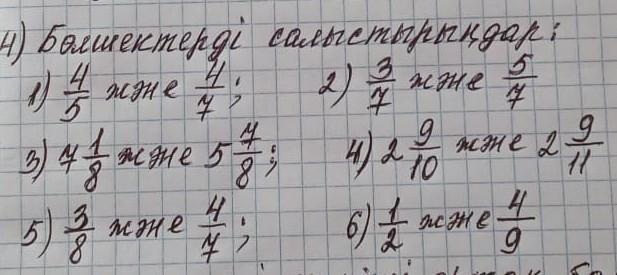 4) Бөлшектерді салыстырыңдар:
1) 4/5 және 4/7; 2) 3/7 және 5/7
3) 7 1/8 және 5 7/8; 4) 2 9/10 және 2 9/11
5) 3/8 және 4/7; 6) 1/2 және 4/9